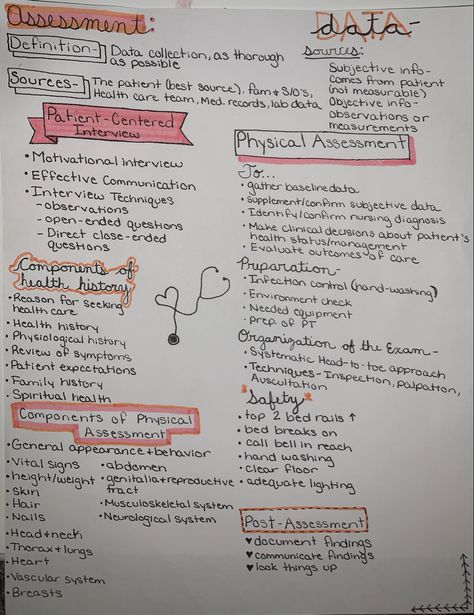 Assessment:
Definition- Data collection, as thorough
as possible
Sources- The patient (best source), fam & S/O's,
Health care team, Med. records, lab data
Patient-Centered
Interview
• Motivational interview
• Effective Communication
• Interview Techniques
- observations
- open-ended questions
- Direct close-ended
questions
Components of
health history
• Reason for seeking
health care
• Health history
• Physiological history
• Review of symptoms
• Patient expectations
• Family history
• Spiritual health
Components of Physical
Assessment
• General appearance + behavior
• Vital signs
• height/weight
• Skin
• Hair
• Nails
• Head + neck
• Thorax + lungs
• Heart
• Vascular system
• Breasts
• abdomen
• genitalia + reproductive
tract
• Musculoskeletal system
• Neurological system
DATA
data-
sources:
Subjective info-
comes from patient
(not measurable)
Objective info-
observations or
measurements
Physical Assessment
To...
• gather baseline data
• supplement/confirm subjective data
• Identify/confirm nursing diagnosis
• Make clinical decisions about patient's
health status/management
• Evaluate outcomes of care
Preparation-
• Infection control (hand-washing)
• Environment check
• Needed equipment
• prep. of PT
Organization of the Exam-
• Systematic Head-to-toe approach
• Techniques- Inspection, palpation,
Auscultation
*Safety*
• top 2 bed rails ↑
• bed breaks on
• call bell in reach
• hand washing
• clear floor
• adequate lighting
Post-Assessment
♥ document findings
♥ communicate findings
♥ look things up